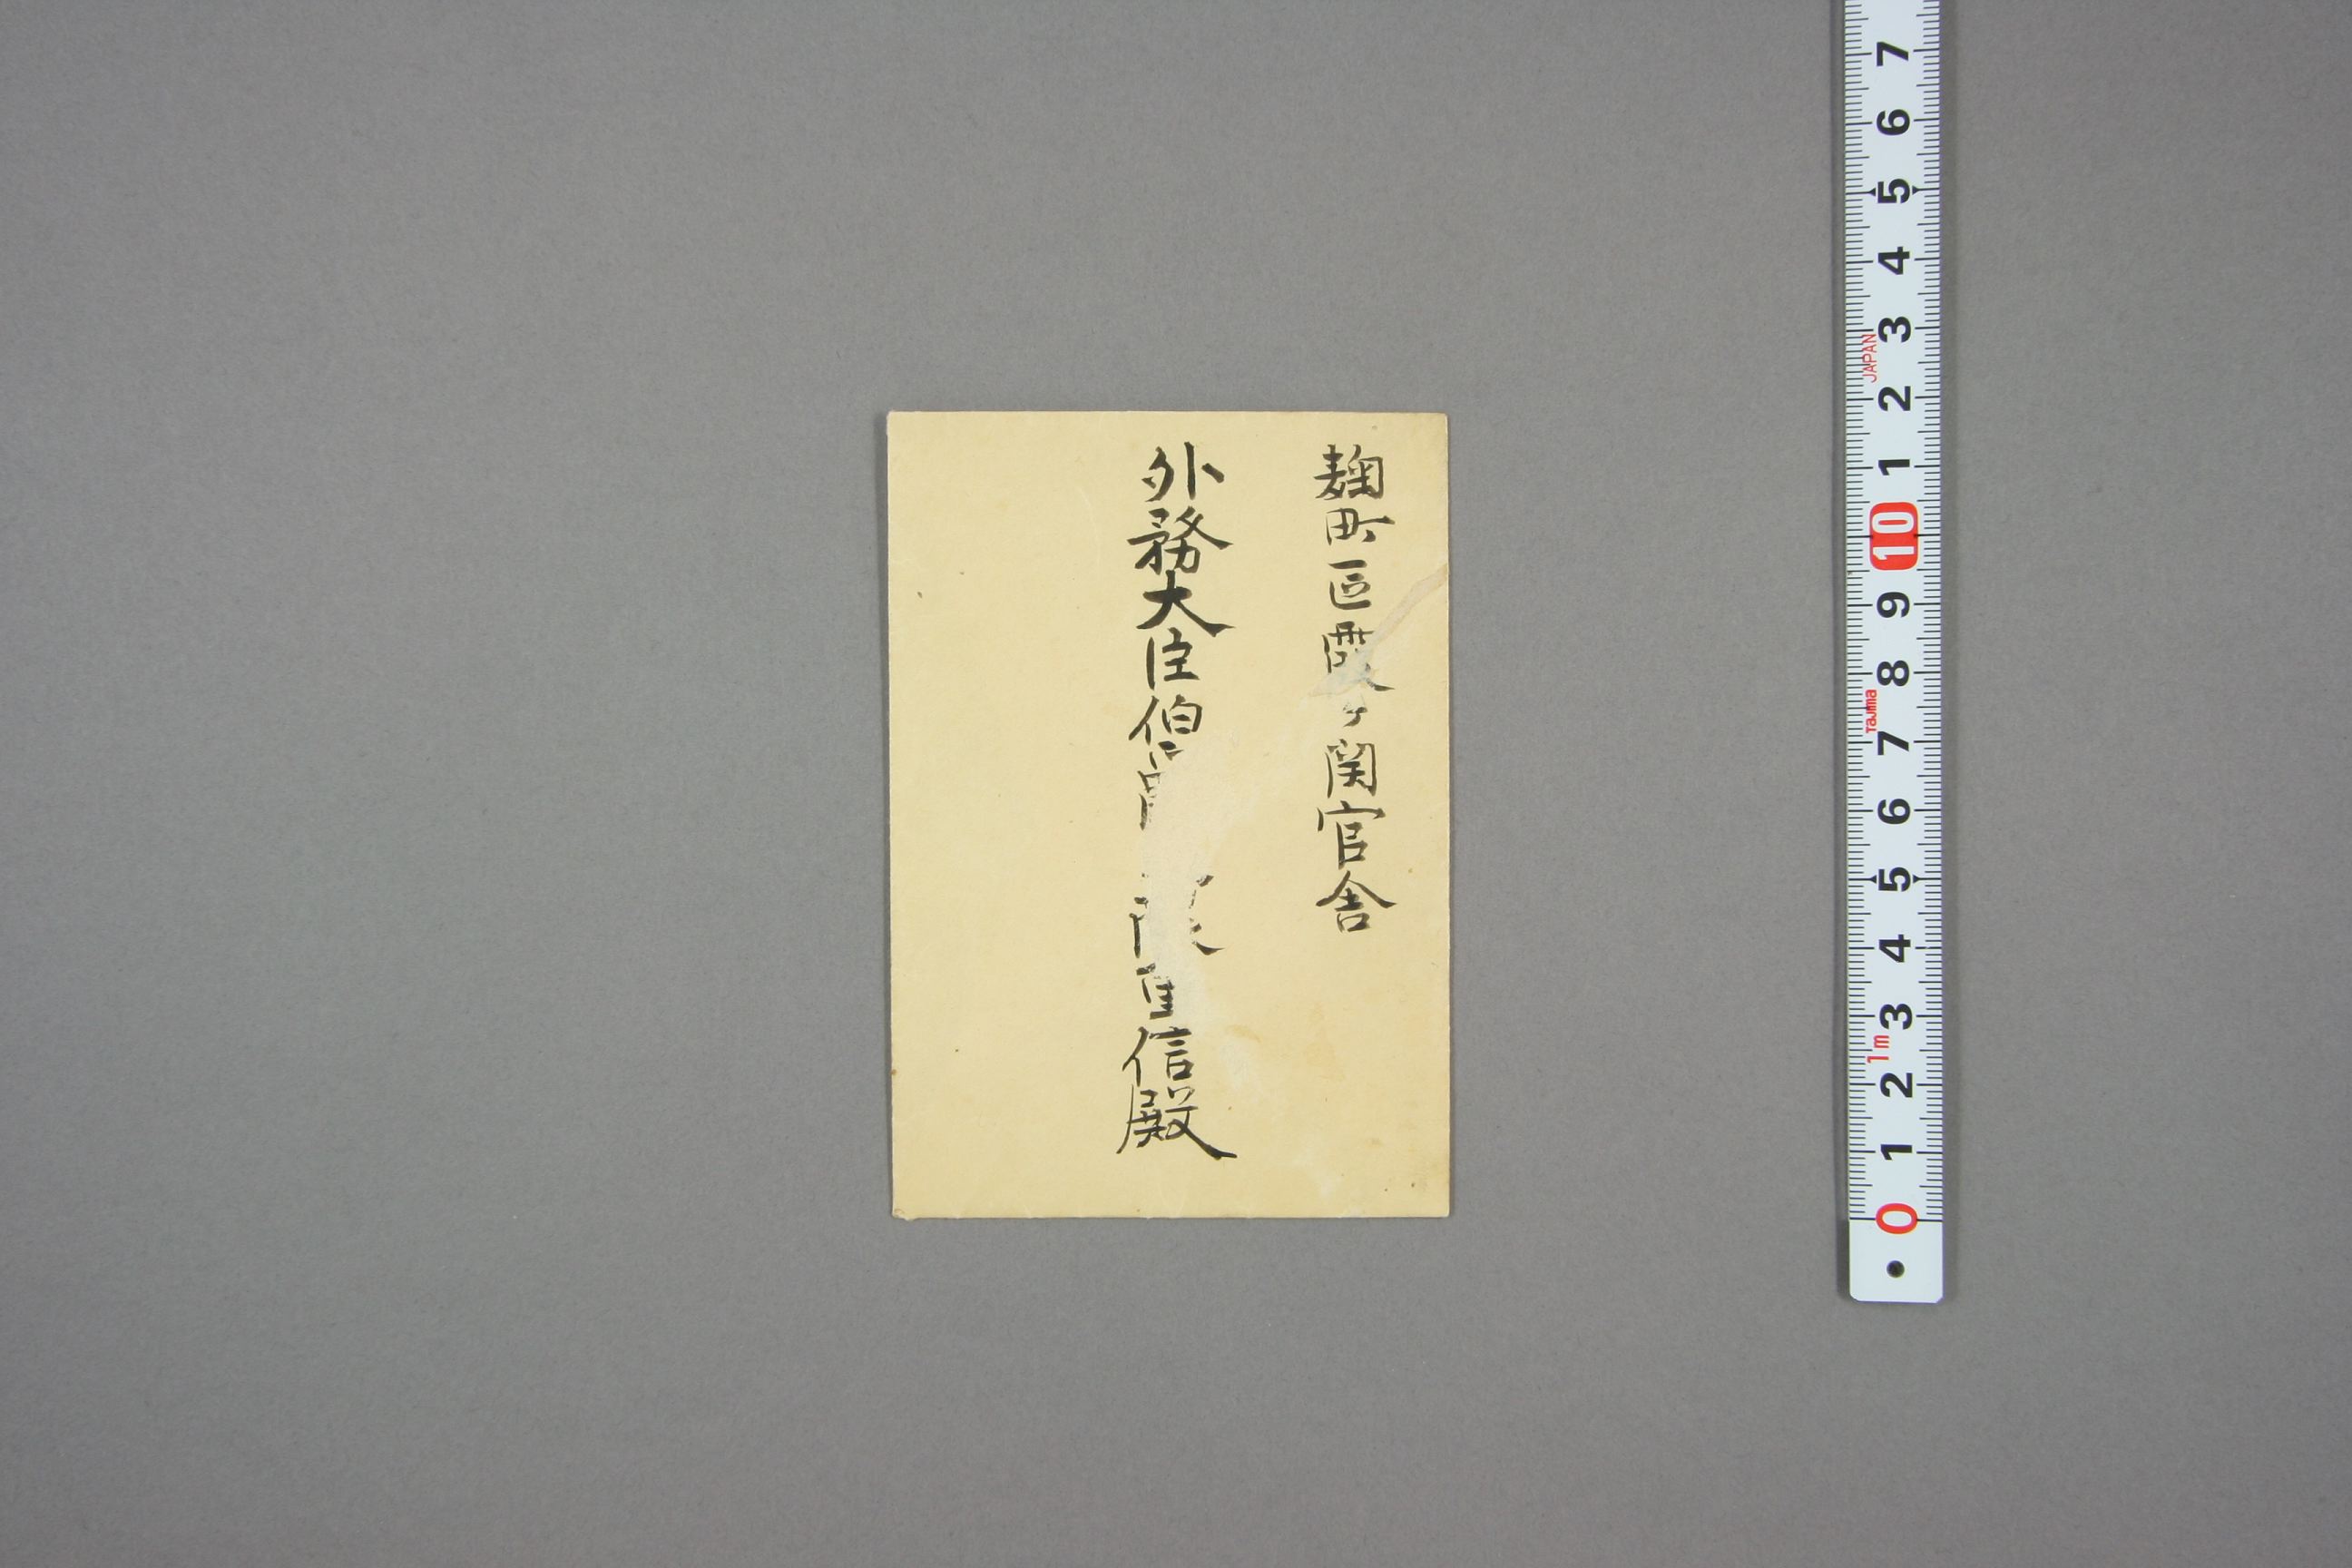 麹町区霞ヶ関官舎
外務大臣伯爵 隈重信殿
7
6
5
4
3
JAPAN
2
1
10
9
8
Tajima
7
6
5
4
3
1m
2
1
0